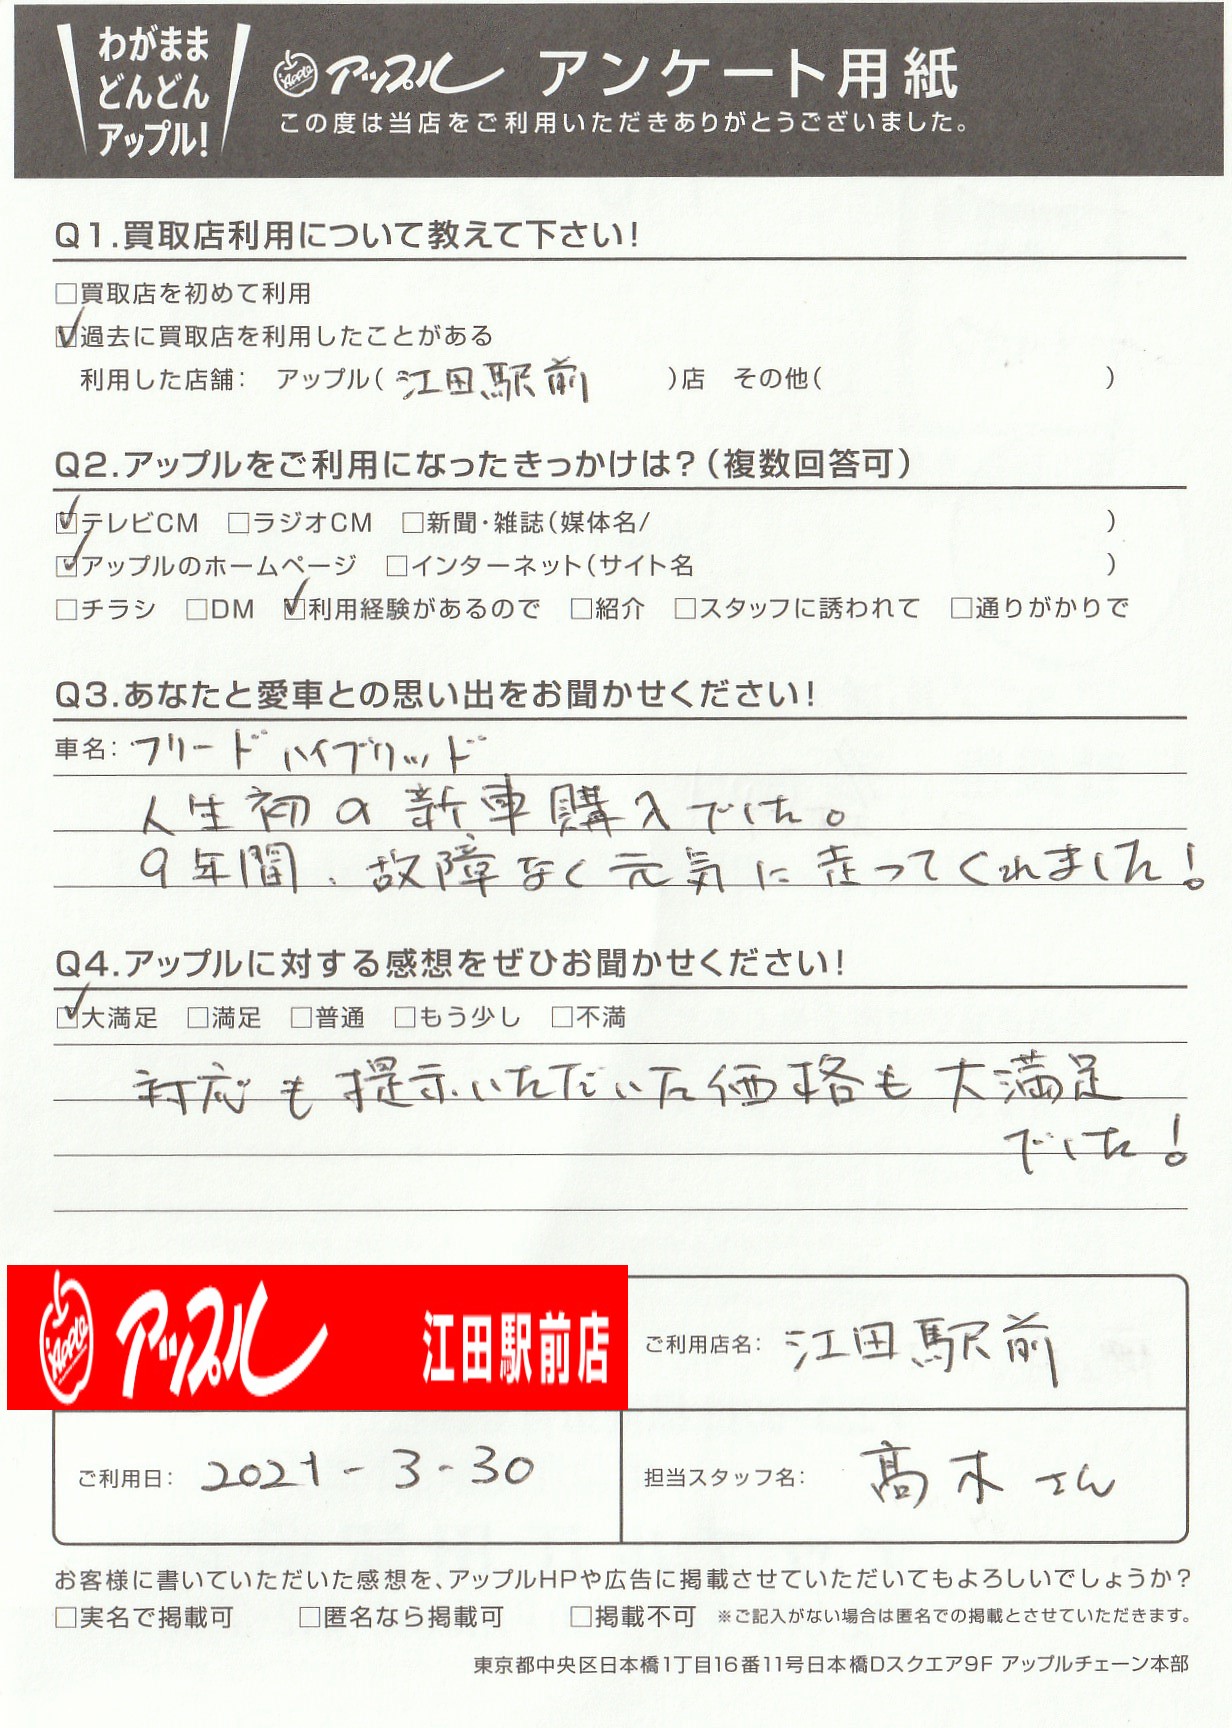 わがまま
どんどん
アップル!
Apple アップル アンケート用紙
この度は当店をご利用いただきありがとうございました。
Q1.買取店利用について教えて下さい!
□買取店を初めて利用
☑過去に買取店を利用したことがある
利用した店舗: アップル( 江田駅前 )店 その他( )
Q2.アップルをご利用になったきっかけは?(複数回答可)
☑テレビCM □ラジオCM □新聞・雑誌(媒体名/ )
☑アップルのホームページ □インターネット(サイト名 )
□チラシ □DM ☑利用経験があるので □紹介 □スタッフに誘われて □通りがかりで
Q3.あなたと愛車との思い出をお聞かせください!
車名: フリードハイブリッド
人生初の新車購入でした。
9年間、故障なく元気に走ってくれました!
Q4.アップルに対する感想をぜひお聞かせください!
☑大満足 □満足 □普通 □もう少し □不満
対応も提示いただいた価格も大満足
でした!
Apple アップル 江田駅前店
ご利用店名: 江田駅前
ご利用日: 2021-3-30
担当スタッフ名: 髙木さん
お客様に書いていただいた感想を、アップルHPや広告に掲載させていただいてもよろしいでしょうか?
□実名で掲載可 □匿名なら掲載可 □掲載不可 ※ご記入がない場合は匿名での掲載とさせていただきます。
東京都中央区日本橋1丁目16番11号日本橋Dスクエア9F アップルチェーン本部